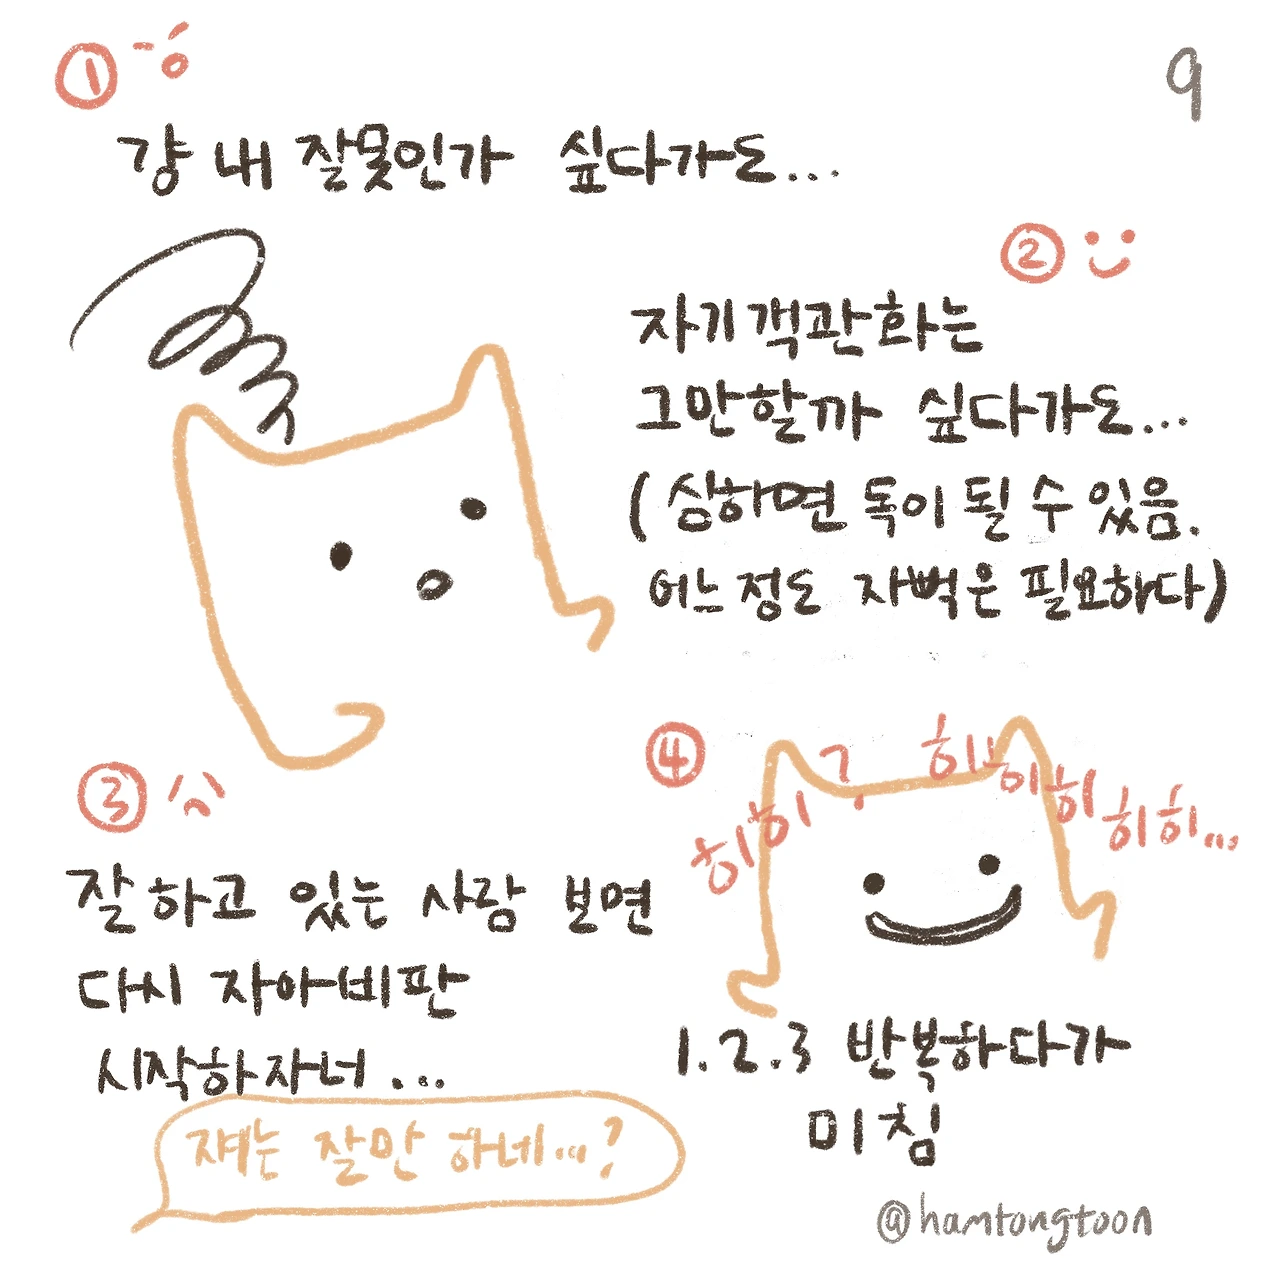 ①
9
걍 내 잘못인가 싶다가도...
②
자기객관화는
그만할까 싶다가도...
(심하면 독이 될 수 있음.
어느정도 자뻑은 필요하다)
③
잘하고 있는 사람 보면
다시 자아비판
시작하자너...
쟤는 잘만 하네...?
④
히히ㄱ히히히히히...
1.2.3 반복하다가
미침
@hamtongtoon